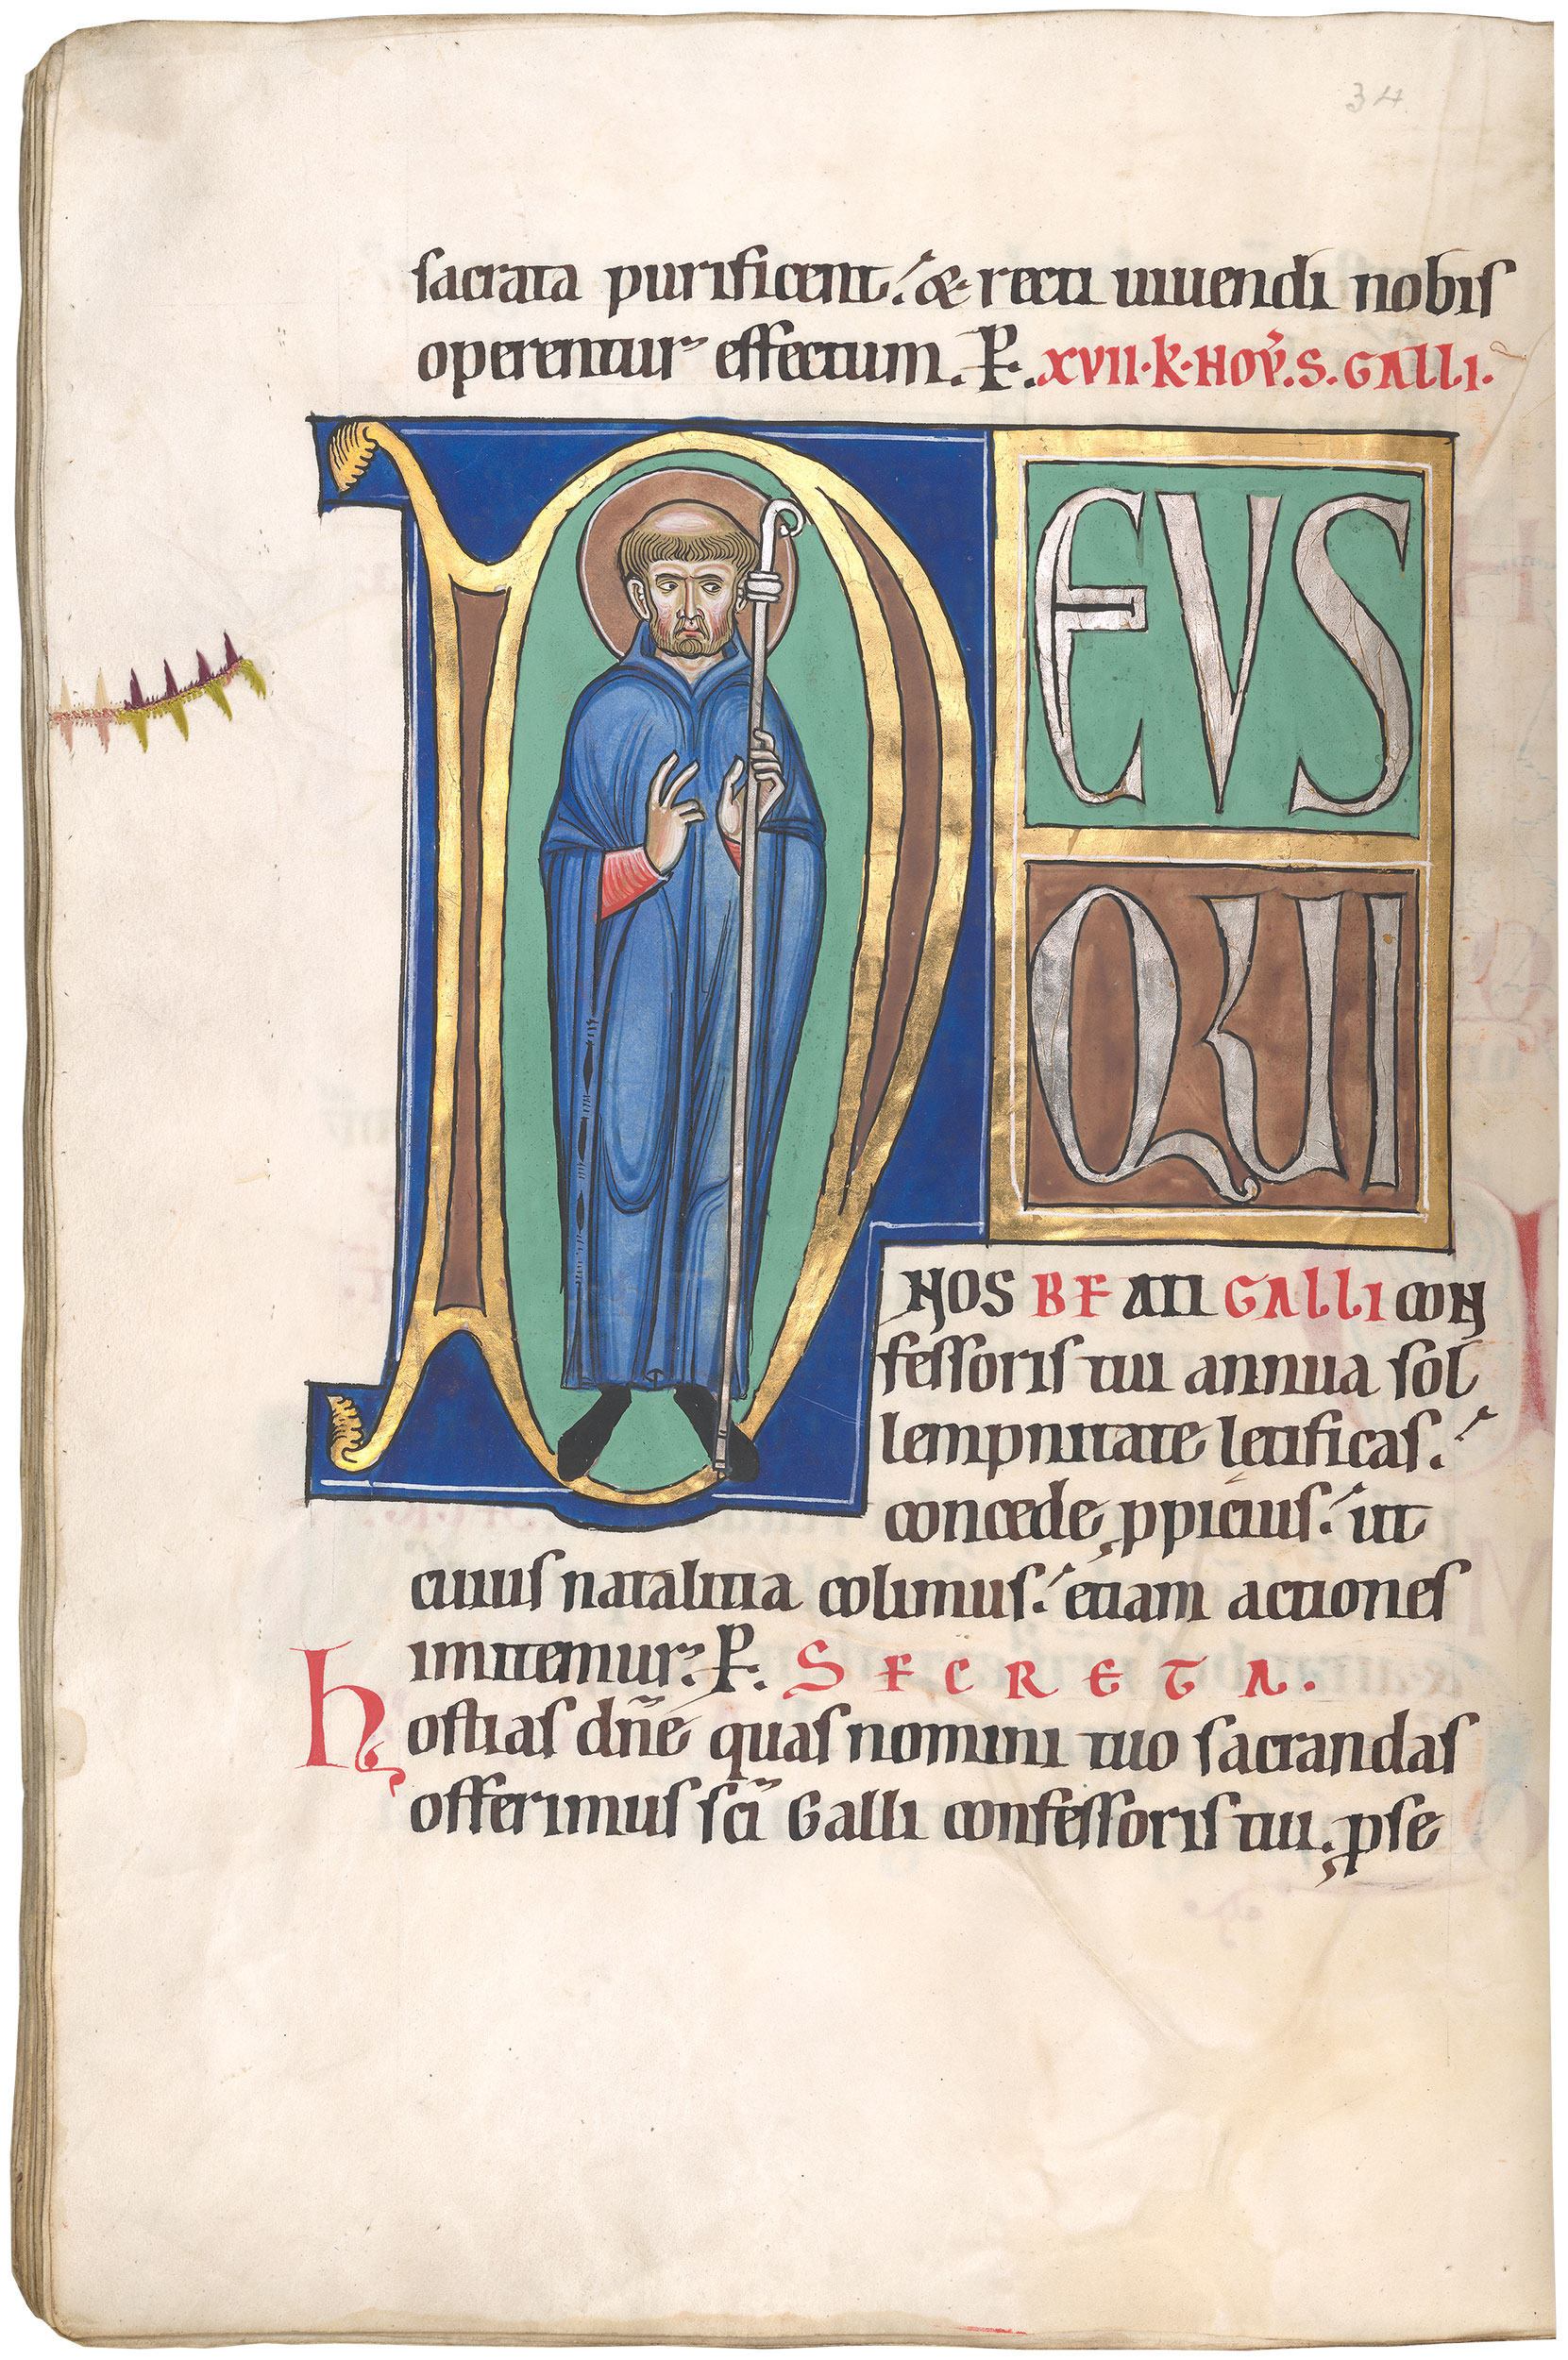 34.
sacrata purificent. & recti uiuendi nobis
operentur effectum. P. XVII. K. NOV. S. GALLI.
DEVS
QUI
NOS BEATI GALLI CON
fessoris tui annua sol
lempnitate letificas.
concede ppicius. ut
cuius natalitia colimus. etiam actiones
imitemur. P. SECRETA.
hostias dñe quas nomini tuo sacrandas
offerimus sci Galli confessoris tui. pse